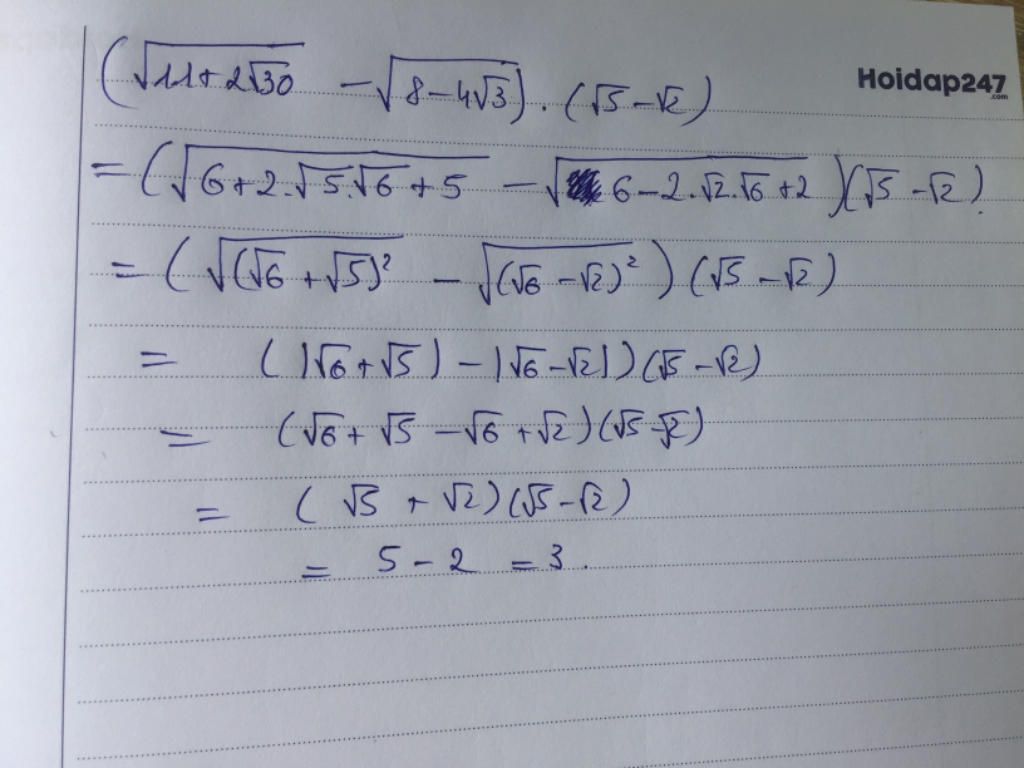 (√(11+2√30) - √(8-4√3)) . (√5 - √2)
Hoidap247
.com
= (√(6+2.√5.√6+5) - √(6-2.√2.√6+2))(√5 - √2).
= (√((√6+√5)²) - √((√6-√2)²)) (√5 - √2)
= (|√6+√5) - |√6-√2|)(√5 - √2)
= (√6+√5 - √6+√2)(√5-√2)
= (√5 + √2)(√5-√2)
= 5 - 2 = 3.